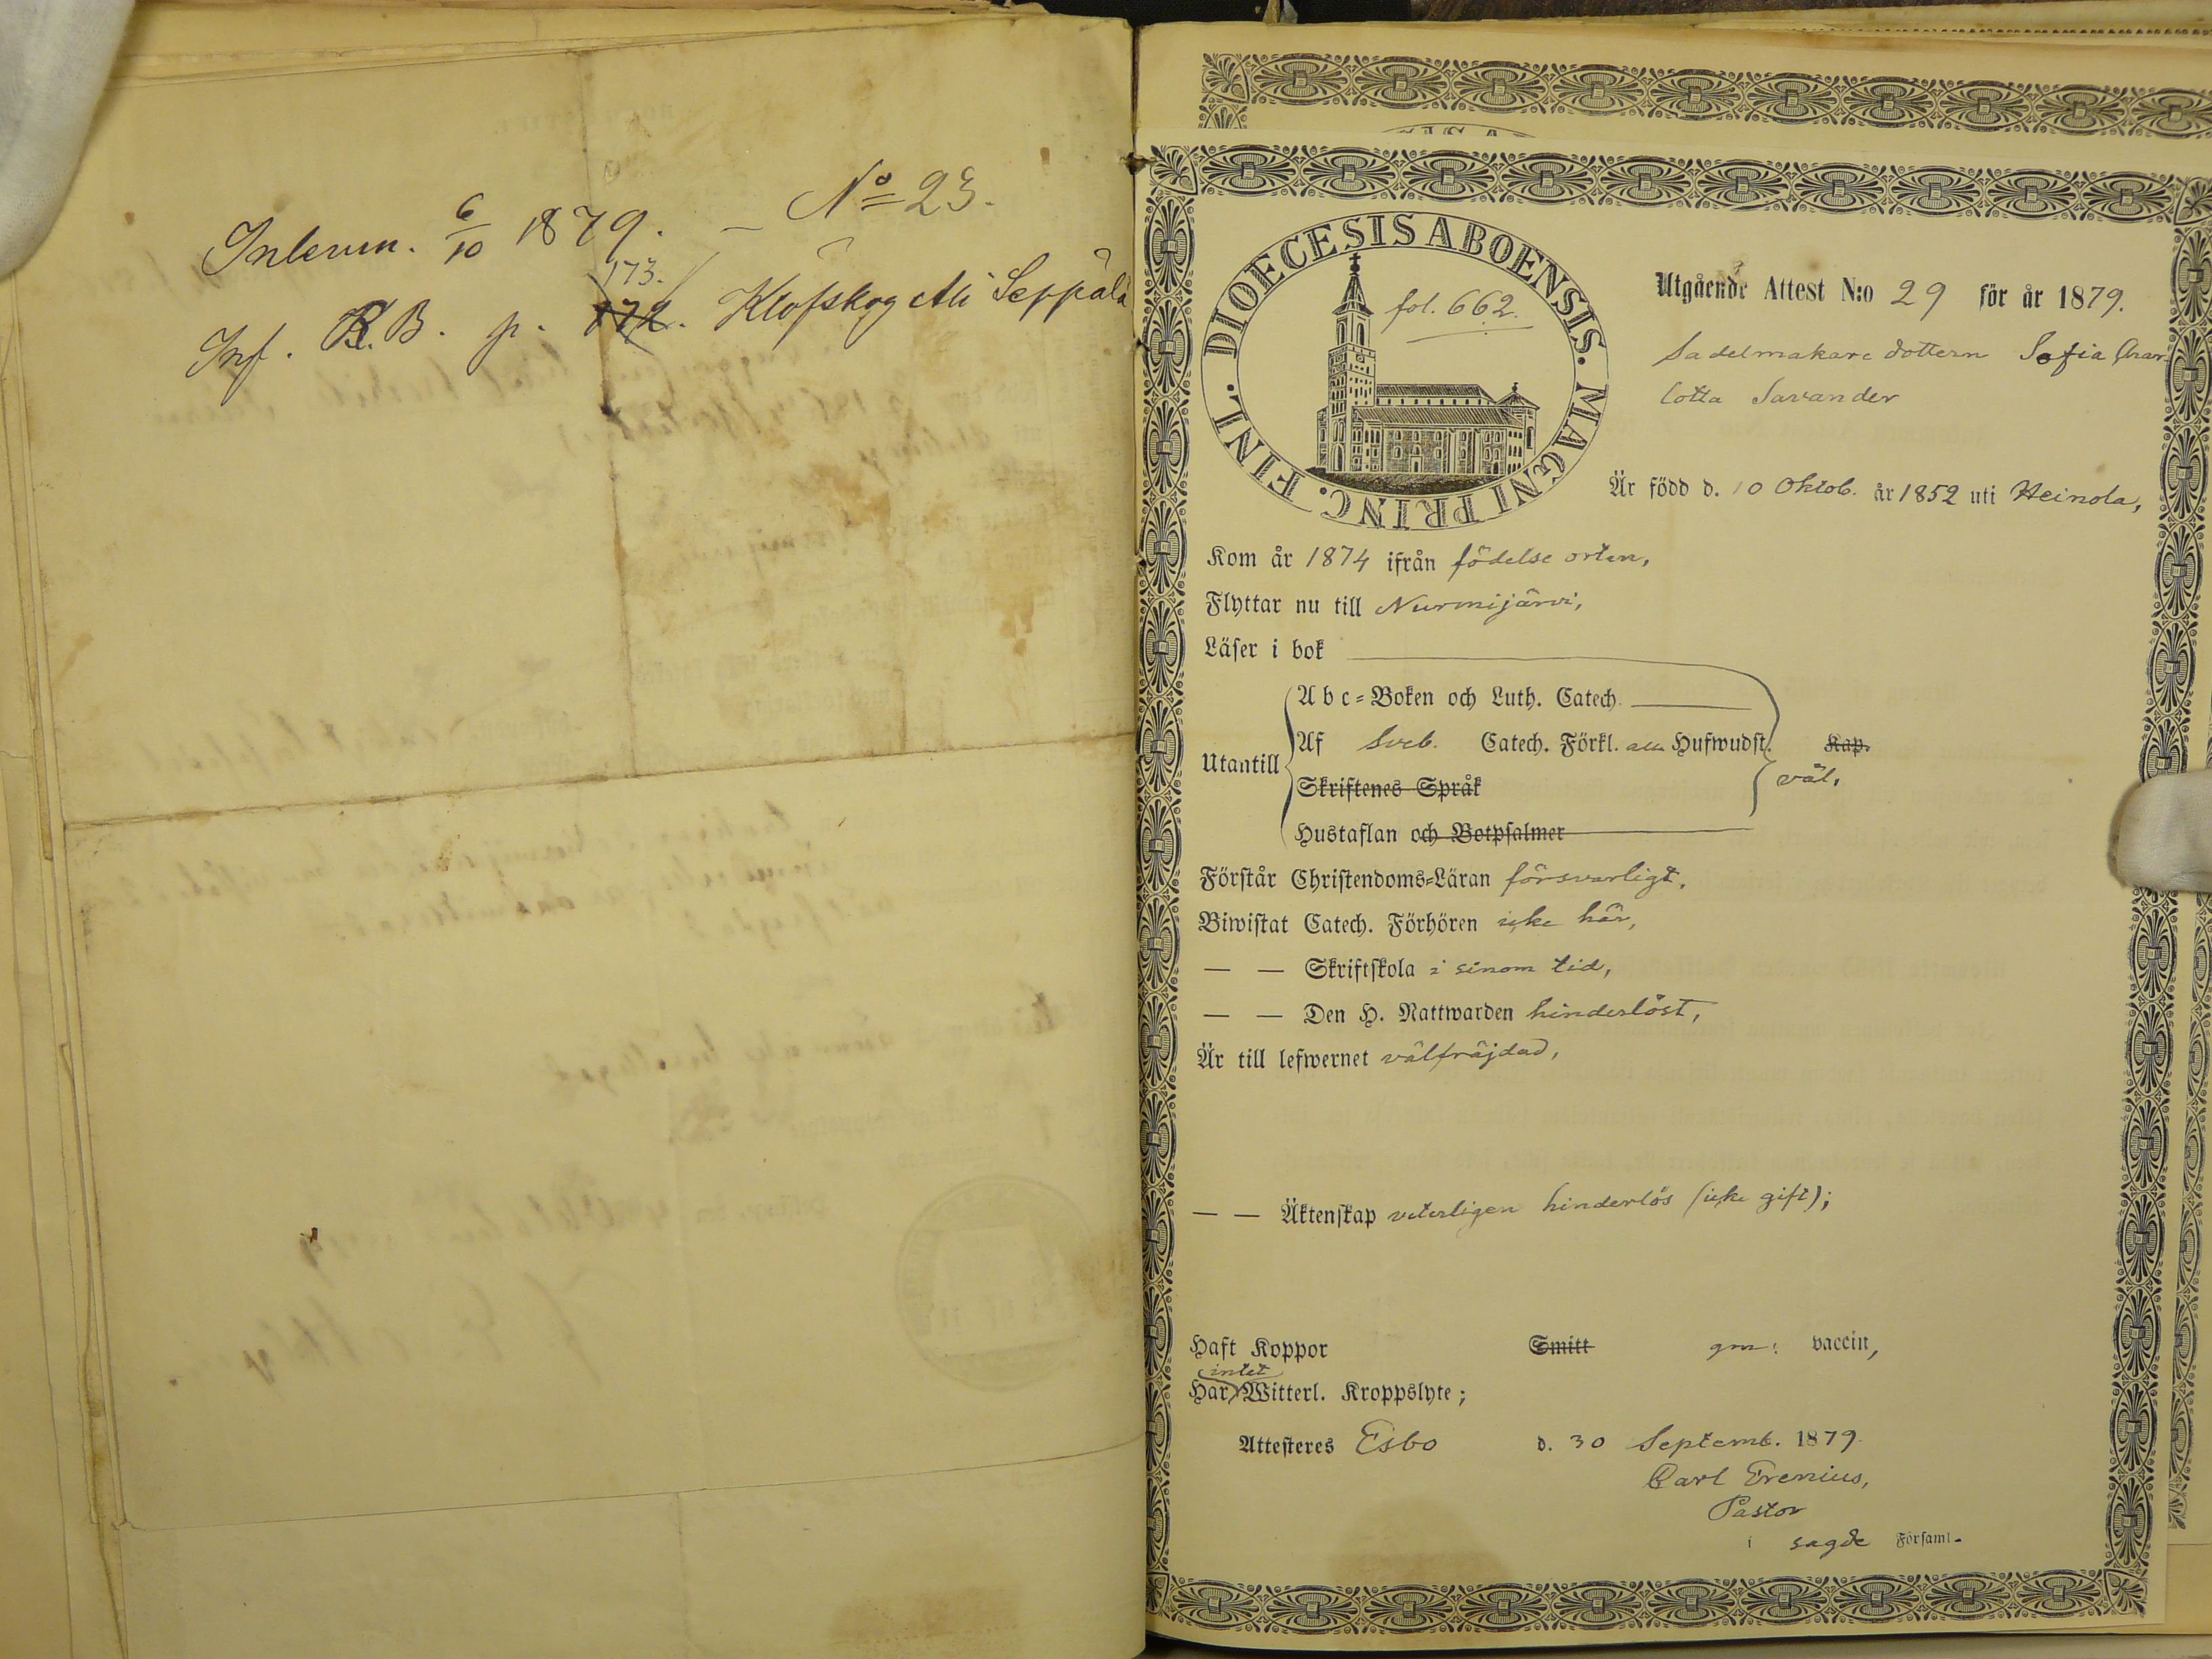 Inlemn. 6/10 1879. – No 23.
173.
Inf. K.B. p. 172. Klöfskog Ali Seppälä
DIOECESIS ABOENSIS. MAGNI PRINC. FINL.
fol. 662.
Utgående Attest N:o 29 för år 1879.
Sadelmakare dottern Sofia Char-
lotta Savander
Är född d. 10 Oktob. år 1852 uti Heinola,
Kom år 1874 ifrån födelse orten,
Flyttar nu till Nurmijärvi,
Läser i bok
Abc=Boken och Luth. Catech.
Utantill Af Sveb. Catech. Förkl. alla Hufwudst. Kap.
väl.
Skriftenes Språk
Hustaflan och Botpsalmer
Förstår Christendoms=Läran försvarligt.
Biwistat Catech. Förhören icke här,
— — Skriftskola i sinom tid,
— — Den H. Nattwarden hinderlöst,
Är till lefwernet välfräjdad,
— — Äktenskap veterligen hinderlös (icke gift);
Haft Koppor Smitt gm: vaccin,
intet
Har Witterl. Kroppslyte;
Attesteres Esbo d. 30 Septemb. 1879
Carl Erenius,
Pastor
i sagde Församl.